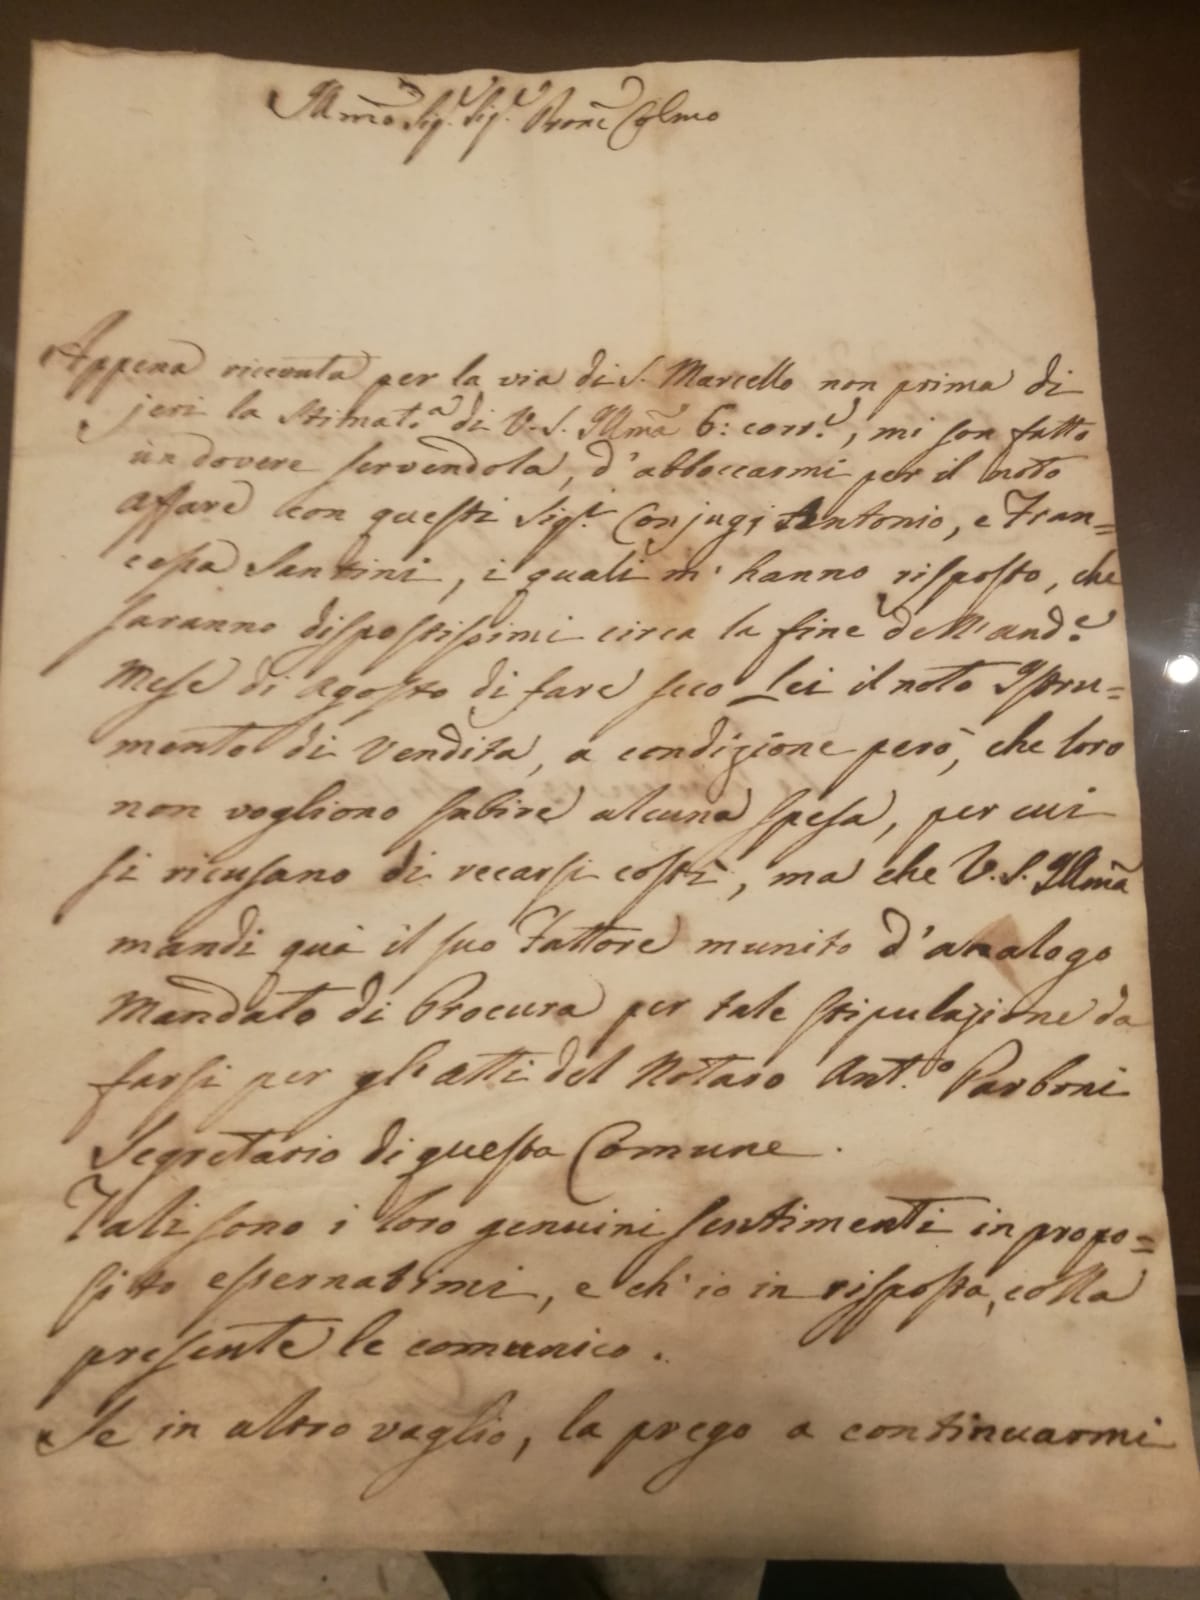 Illmo Sig.r Sig.r Prone Colmo
Appena ricevuta per la via di S. Marcello non prima di
jeri la stimat.a di V. S. Illma 6: corr.e, mi son fatto
un dovere servendola, d'abboccarmi per il noto
affare con questi Sig.i Conjugi Antonio, e Fran=
cesca Santini, i quali m'hanno risposto, che
saranno dispostissimi circa la fine dell'and.e
Mese di Agosto di fare seco Lei il noto Istru=
mento di Vendita, a condizione però, che loro
non vogliono subire alcuna spesa, per cui
si ricusano di recarsi costì, ma che V. S. Illma
mandi quà il suo Fattore munito d'analogo
Mandato di Procura per tale stipulazione da
farsi per gli atti del Notaro Ant.o Parboni
Segretario di questa Comune.
Tali sono i loro genuini sentimenti in propo=
sito esternatimi, e ch'io in risposta, colla
presente le comunico.
Se in altro vaglio, la prego a continuarmi